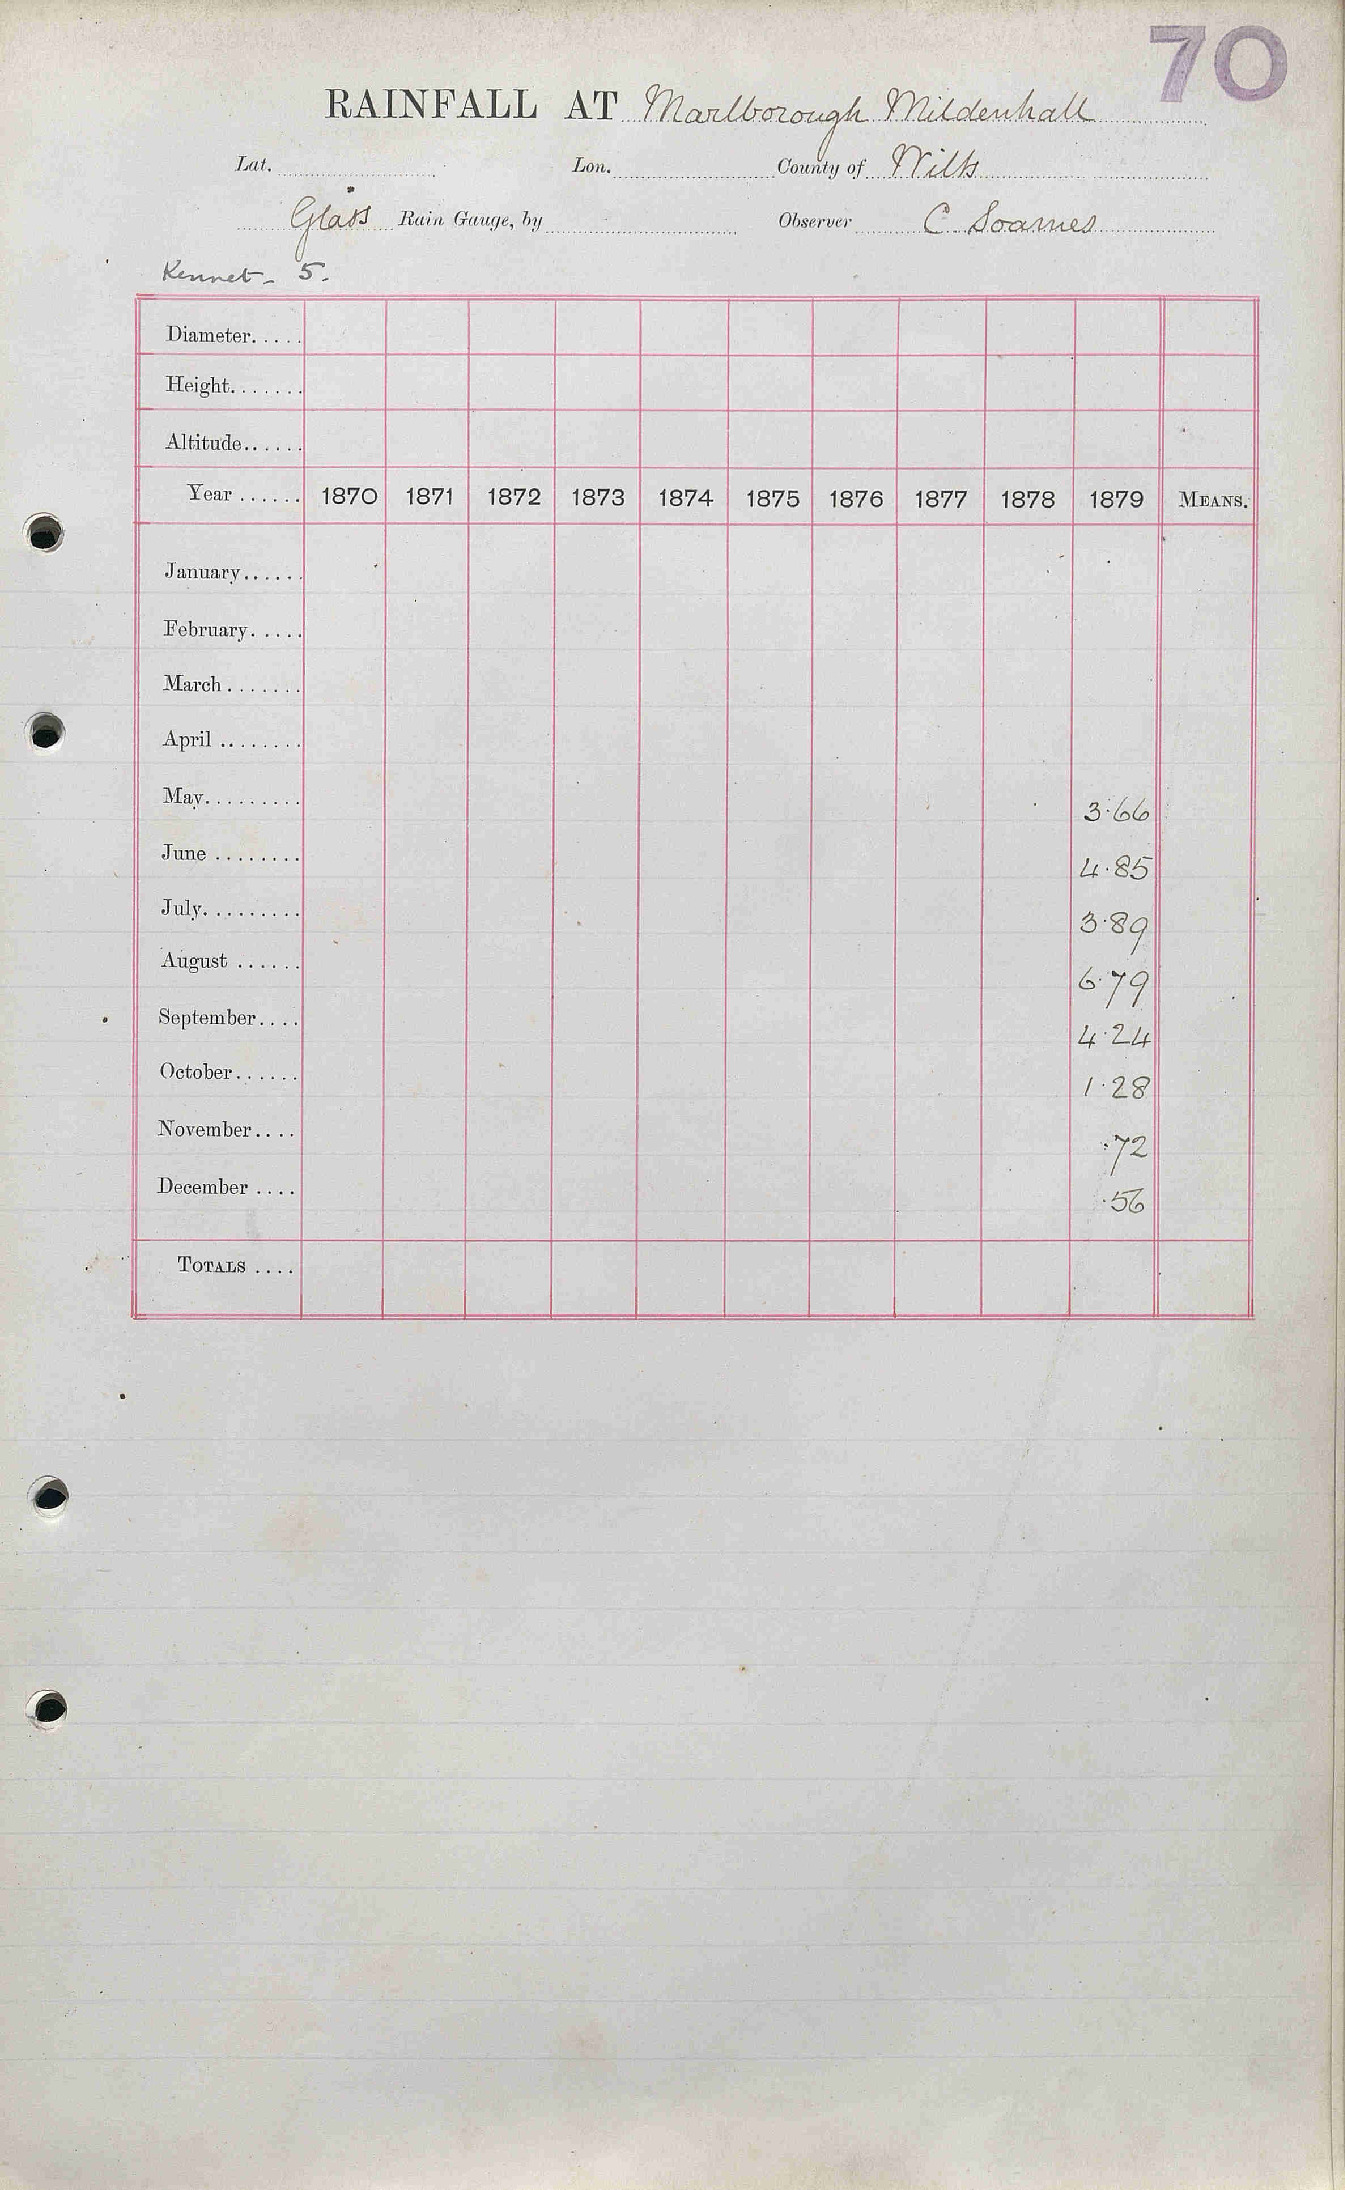 70
RAINFALL AT Marlborough Mildenhall
Lat. Lon. County of Wilts
Glass Rain Gauge, by Observer C Soames
Kennet - 5.
Diameter.....
Height.......
Altitude......
Year ...... 1870 1871 1872 1873 1874 1875 1876 1877 1878 1879 MEANS.
January......
February.....
March.......
April ........
May......... 3.66
June ........ 4.85
July......... 3.89
August ...... 6.79
September.... 4.24
October...... 1.28
November.... .72
December .... .56
TOTALS ....